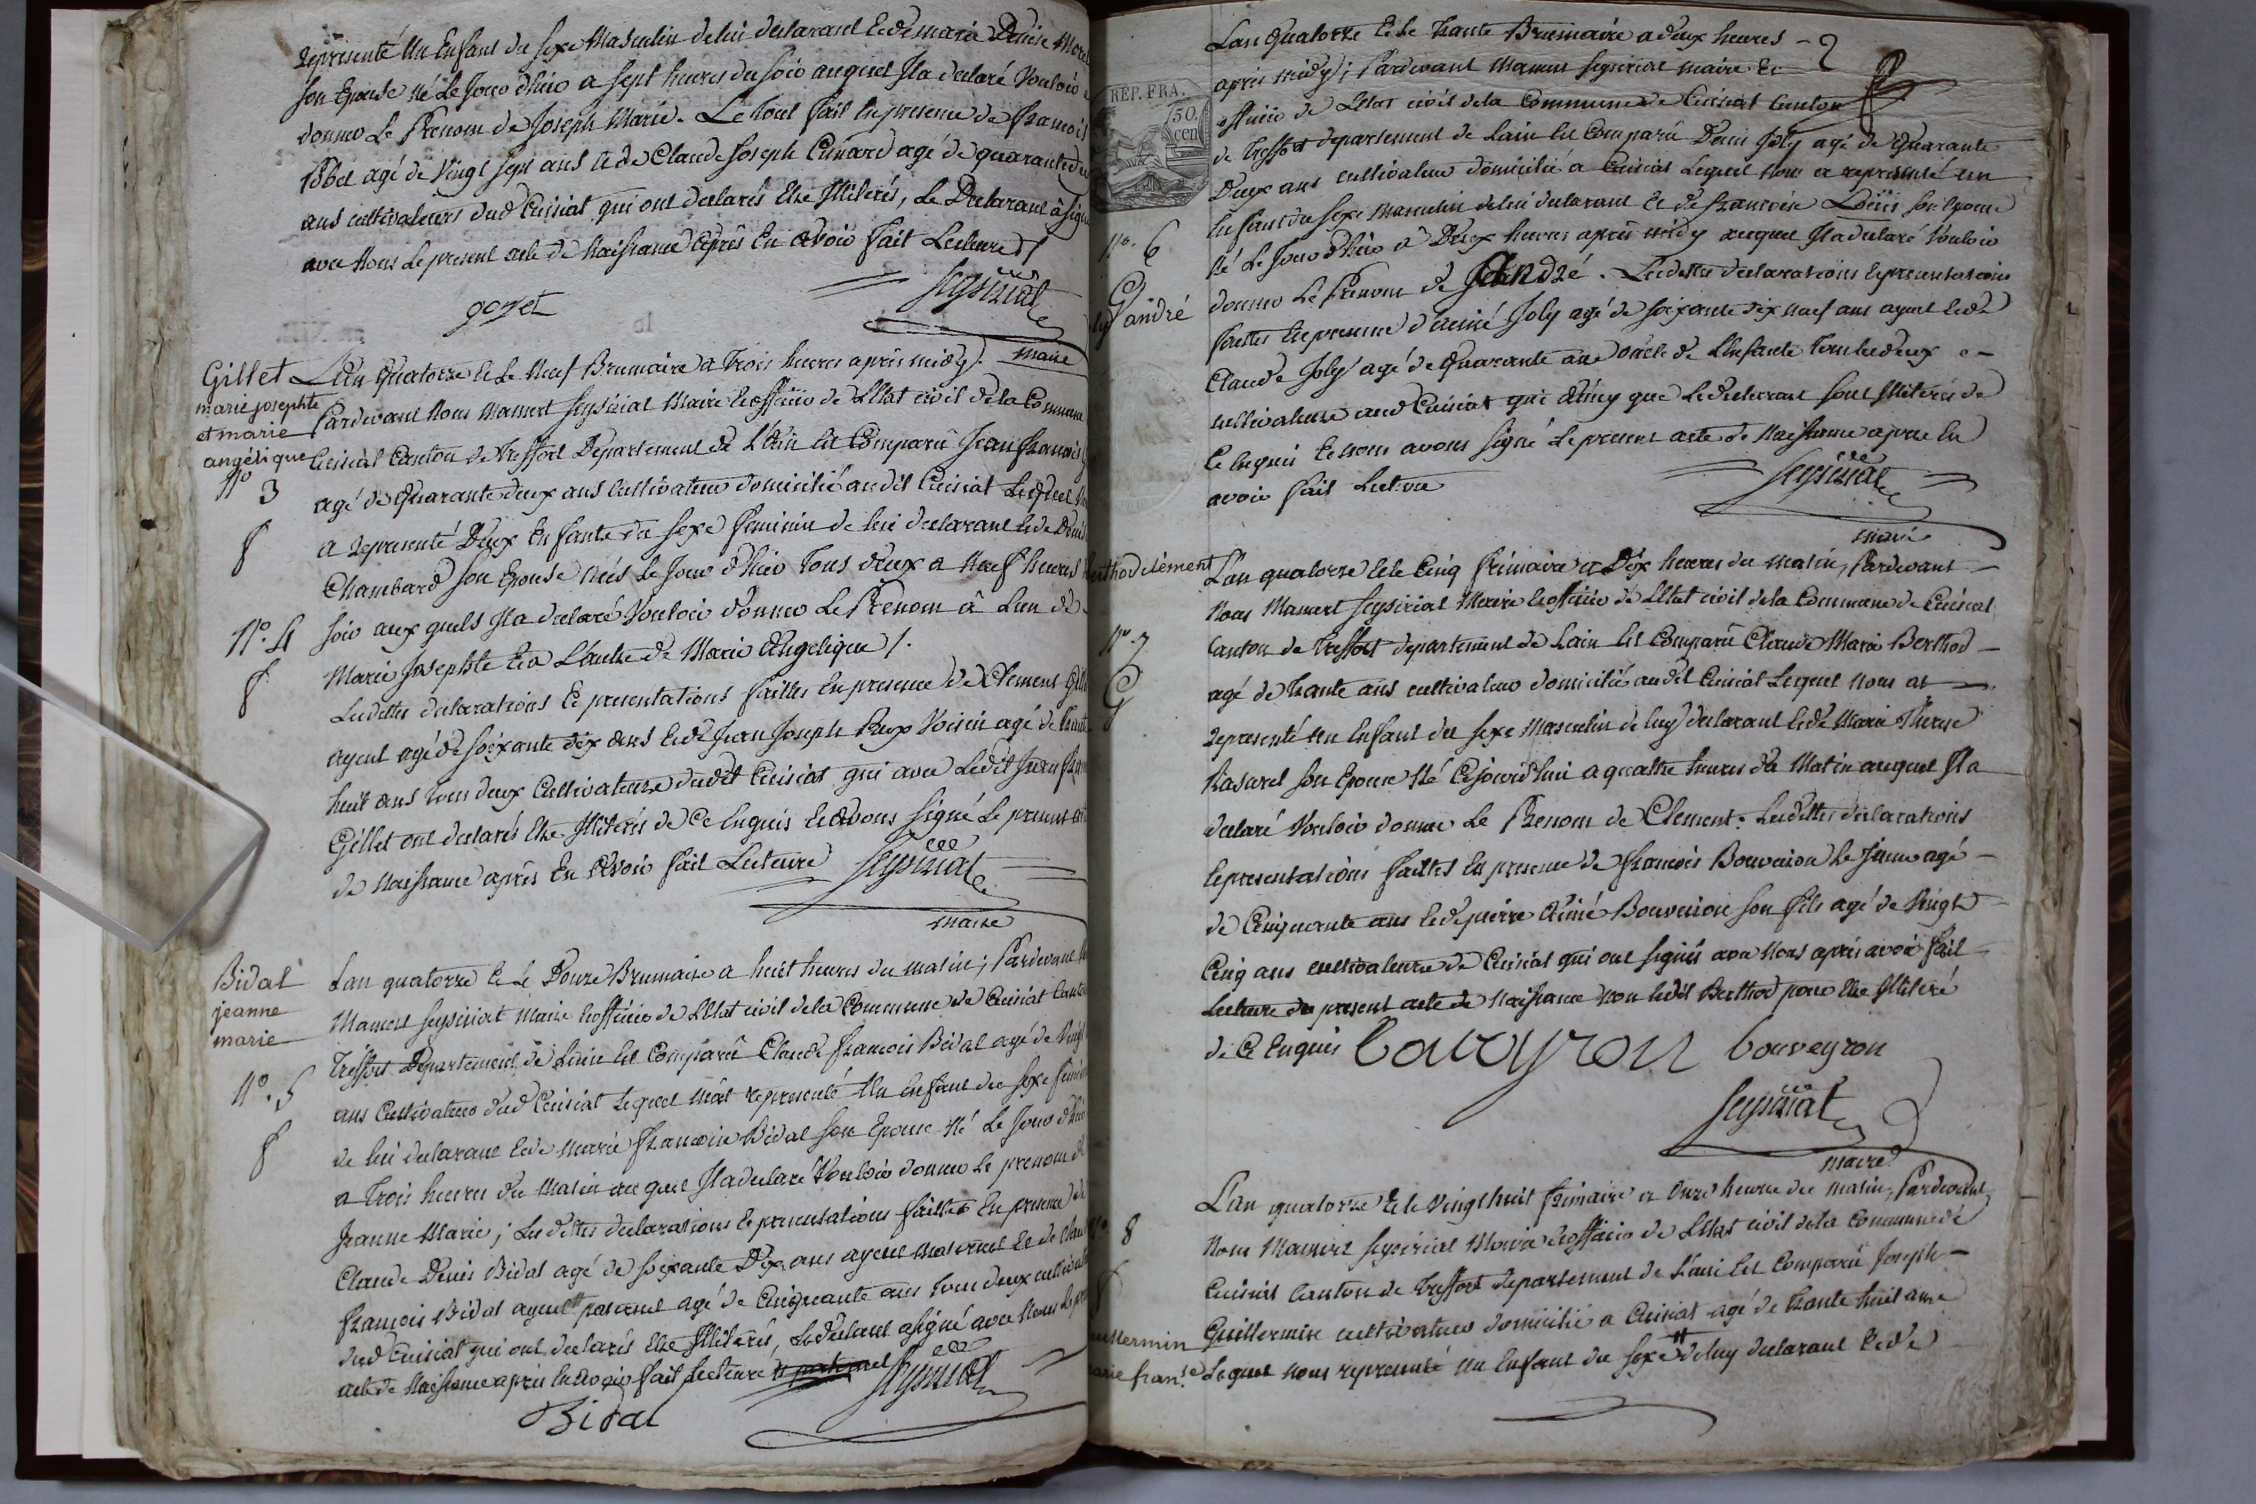 représenté Un Enfant du sexe Masculin de lui declarant et de maria Denise Morel
son Epouse né Le Jour d'hier a sept heures du soir auquel Il a declaré Vouloir
donner Le Prenom de Joseph Marie. Le tout fait En presence de francois
agé de Vingt sept ans et de Claude Joseph Cunard agé de quarante
ans cultivateurs dud Cuisiat qui ont declarés Etre Illiterés, Le Declarant a signé
avec Nous Le present acte de Naissance après En avoir fait Lecture
goyet
Seysiriat
maire
Gillet
marie josephte
et marie
angélique
N° 3
f
N°. 4
f
L'an Quatorze et Le Neuf Brumaire a Trois heures après midy.
Pardevant Nous Mamert Seysiriat Maire et officier de L'Etat civil de la Commune
Cuisiat Canton de Treffort Departement de L'Ain Est Comparû Jean francois
agé de Quarante deux ans Cultivateur domicilié audit Cuisiat Lequel
a representé Deux Enfants du sexe feminin de lui declarant et de
Chambard son Epouse Nés Le Jour d'hier Tous deux a Neuf heures
soir aux quels Il a declaré Vouloir donner Le Prenom à L'un de
Marie Josephte et a L'autre de Marie Angelique /.
Lesdittes declarations et presentations faittes En presence de Clement
ayeul agé de soixante dix ans et de Jean Joseph Voisin agé de
huit ans tous deux Cultivateurs dudit Cuisiat qui avec Ledit Jean
Gillet ont declarés Etre Illiterés de Ce Enquis et avons signé Le present
de Naissance après En Avoir fait Lecture
Seysiriat
maire
Bidal
jeanne
marie
N°. 5
f
L'an quatorze et Le Douze Brumaire a huit heures du matin; Pardevant
Mamert Seysiriat Maire et officier de L'Etat civil de la Commune de Cuisiat Canton
Treffort Departement de L'ain Est Comparû Claude francois Bidal agé de Vingt
ans Cultivateur dud Cuisiat Lequel representé Un Enfant du sexe
de lui declarant et de Marie francoise Bidal son Epouse Né Le Jour d'hier
a Trois heures du Matin auquel Il a declaré Vouloir donner Le prenom de
Jeanne Marie; Lesdittes declarations et presentations faittes En presence de
Claude Denis Bidal agé de soixante Dix ans ayeul maternel et de
francois Bidal ayeul paternel agé de Cinquante ans tous deux
dud Cuisiat qui ont declarés Etre Illiterés, Le declarant a signé avec Nous Le
acte de Naissance apres En Avoir fait Lecture
Seysiriat
Bidal
REP. FRA.
50
cen
L'an Quatorze et Le trante Brumaire a deux heures
après midy; Pardevant Mamert Seysiriat maire et
officier de L'Etat civil de la Commune de Cuisiat Canton
de Treffort departement de L'ain Est Comparû Denis Joly agé de Quarante
Deux ans cultivateur domicilié a Cuisiat Lequel Nous a representé un
Enfant du sexe Masculin de lui declarant et de francoise son Epouse
Né Le Jour d'hier a Deux heures après midy auquel Il a declaré Vouloir
donner Le Prenom de André. Lesdittes declarations et presentations
faittes En presence d'aimé Joly agé de soixante dix neuf ans ayeul et de
Claude Joly agé de Quarante ans oncle de L'Enfant tous les deux
cultivateurs aud Cuisiat qui Ainsy que Le declarant sont Illiterés de
Ce Enquis et nous avons signé Le present acte de Naissance apres En
avoir fait Lecture
N°. 6
G
andré
Seysiriat
maire
berthod clément
N°. 7
G
L'an quatorze et le Cinq frimaire a Dix heures du matin, Pardevant
Nous Mamert Seysiriat Maire et officier de L'Etat civil de la Commune de Cuisiat
Canton de Treffort departement de L'ain Est Comparû Claude Marie Berthod
agé de Trante ans cultivateur domicilié audit Cuisiat Lequel Nous at
representé Un Enfant du sexe Masculin de luy declarant et de Marie Therese
Rasurel son Epouse Né Cejourd'hui a quatre heures du Matin auquel Il a
declaré Vouloir donner Le Prenom de Clement. Lesdittes declarations
et presentations faittes En presence de francois Bouveiron le Jeune agé
de Cinquante ans et de pierre Aimé Bouveiron son fils agé de Vingt
Cinq ans cultivateurs de Cuisiat qui ont signés avec Nous après avoir fait
Lecture du present acte de Naissance Non Ledit Berthod pour Etre Illiteré
de Ce Enquis
bouveyron
Seysiriat
maire
L'an quatorze et le Vingt huit frimaire a Onze heures du matin, Pardevant
Nous Mamert Seysiriat Maire et officier de L'Etat civil de la Commune de
Cuisiat Canton de Treffort departement de L'ain Est Comparû Joseph
Guillermin cultivateur domicilié a Cuisiat agé de trante huit ans
Lequel nous representé un Enfant du sexe de luy declarant et de
8